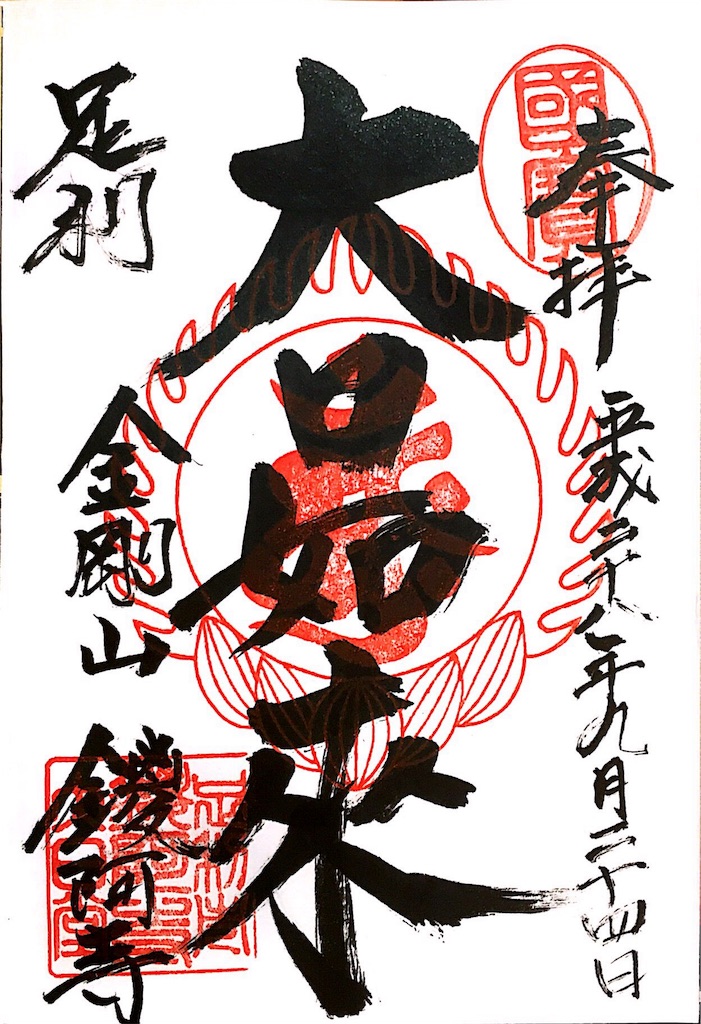 奉拝
平成二十八年九月二十四日
國寶
大日如来
足利
金剛山
鑁阿寺